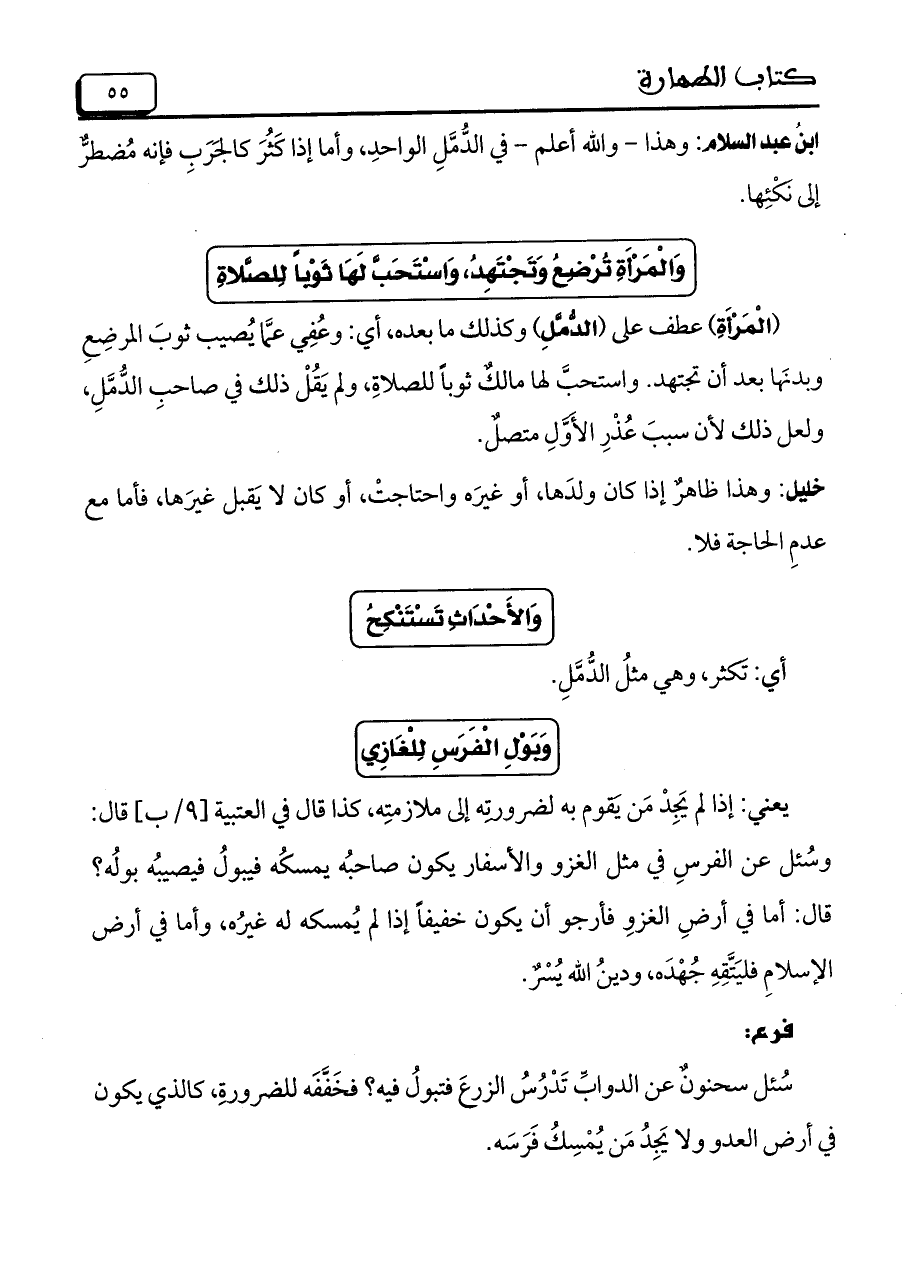 كتاب الطهارة
٥٥
ابنُ عبد السلام: وهذا - والله أعلم - في الدُّمَّلِ الواحدِ، وأما إذا كَثُرَ كالجَرَبِ فإنه مُضطرٌّ
إلى نَكْئِها.
وَالْمَرْأَةِ تُرْضِعُ وَتَجْتَهِدُ، وَاسْتَحَبَّ لَهَا ثَوْباً لِلصَّلاةِ
(الْمَرْأَةِ) عطف على (الدُّمَّلِ) وكذلك ما بعده، أي: وعُفِي عمَّا يُصيب ثوبَ المرضِعِ
وبدنَها بعد أن تجتهد. واستحبَّ لها مالكٌ ثوباً للصلاةِ، ولم يَقُلْ ذلك في صاحبِ الدُّمَّلِ،
ولعل ذلك لأن سببَ عُذْرِ الأَوَّلِ متصلٌ.
خليل: وهذا ظاهرٌ إذا كان ولدَها، أو غيرَه واحتاجتْ، أو كان لا يَقبل غيرَها، فأما مع
عدمِ الحاجة فلا.
وَالأَحْدَاثِ تَسْتَنْكِحُ
أي: تَكثر، وهي مثلُ الدُّمَّلِ.
وَبَوْلِ الْفَرَسِ لِلْغَازِي
يعني: إذا لم يَجِدْ مَن يَقوم به لضرورتِه إلى ملازمتِه، كذا قال في العتبية [٩/ ب] قال:
وسُئل عن الفرسِ في مثل الغزو والأسفار يكون صاحبُه يمسكُه فيبولُ فيصيبُه بولُه؟
قال: أما في أرضِ الغزوِ فأرجو أن يكون خفيفاً إذا لم يُمسكه له غيرُه، وأما في أرض
الإسلامِ فليَتَّقِهِ جُهْدَه، ودينُ الله يُسْرٌ.
فرع:
سُئل سحنونٌ عن الدوابِّ تَدْرُسُ الزرعَ فتبولُ فيه؟ فخَفَّفَه للضرورةِ، كالذي يكون
في أرض العدو ولا يَجِدُ مَن يُمْسِكُ فَرَسَه.